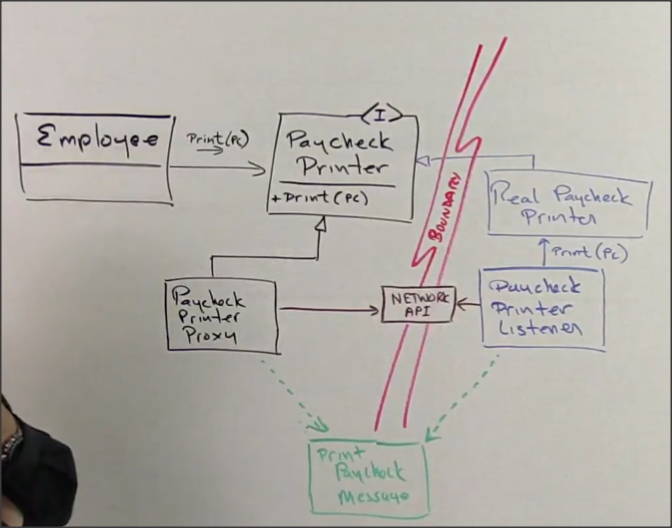 <I>
Employee
Print(PC)
Paycheck
Printer
+Print(PC)
BOUNDARY
Real Paycheck
Printer
Print(PC)
Paycheck
Printer
Proxy
NETWORK
API
Paycheck
Printer
Listener
Print
Paycheck
Message